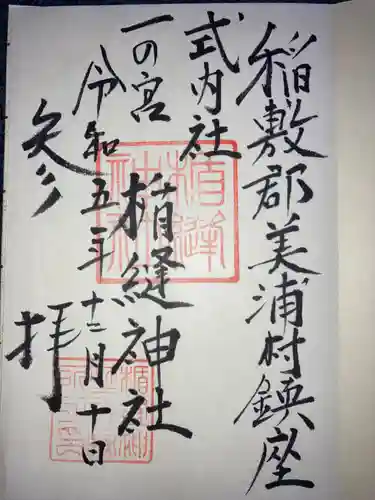 稲敷郡美浦村鎮座
式内社
一の宮
楯縫神社
令和五年十二月十日
参拝